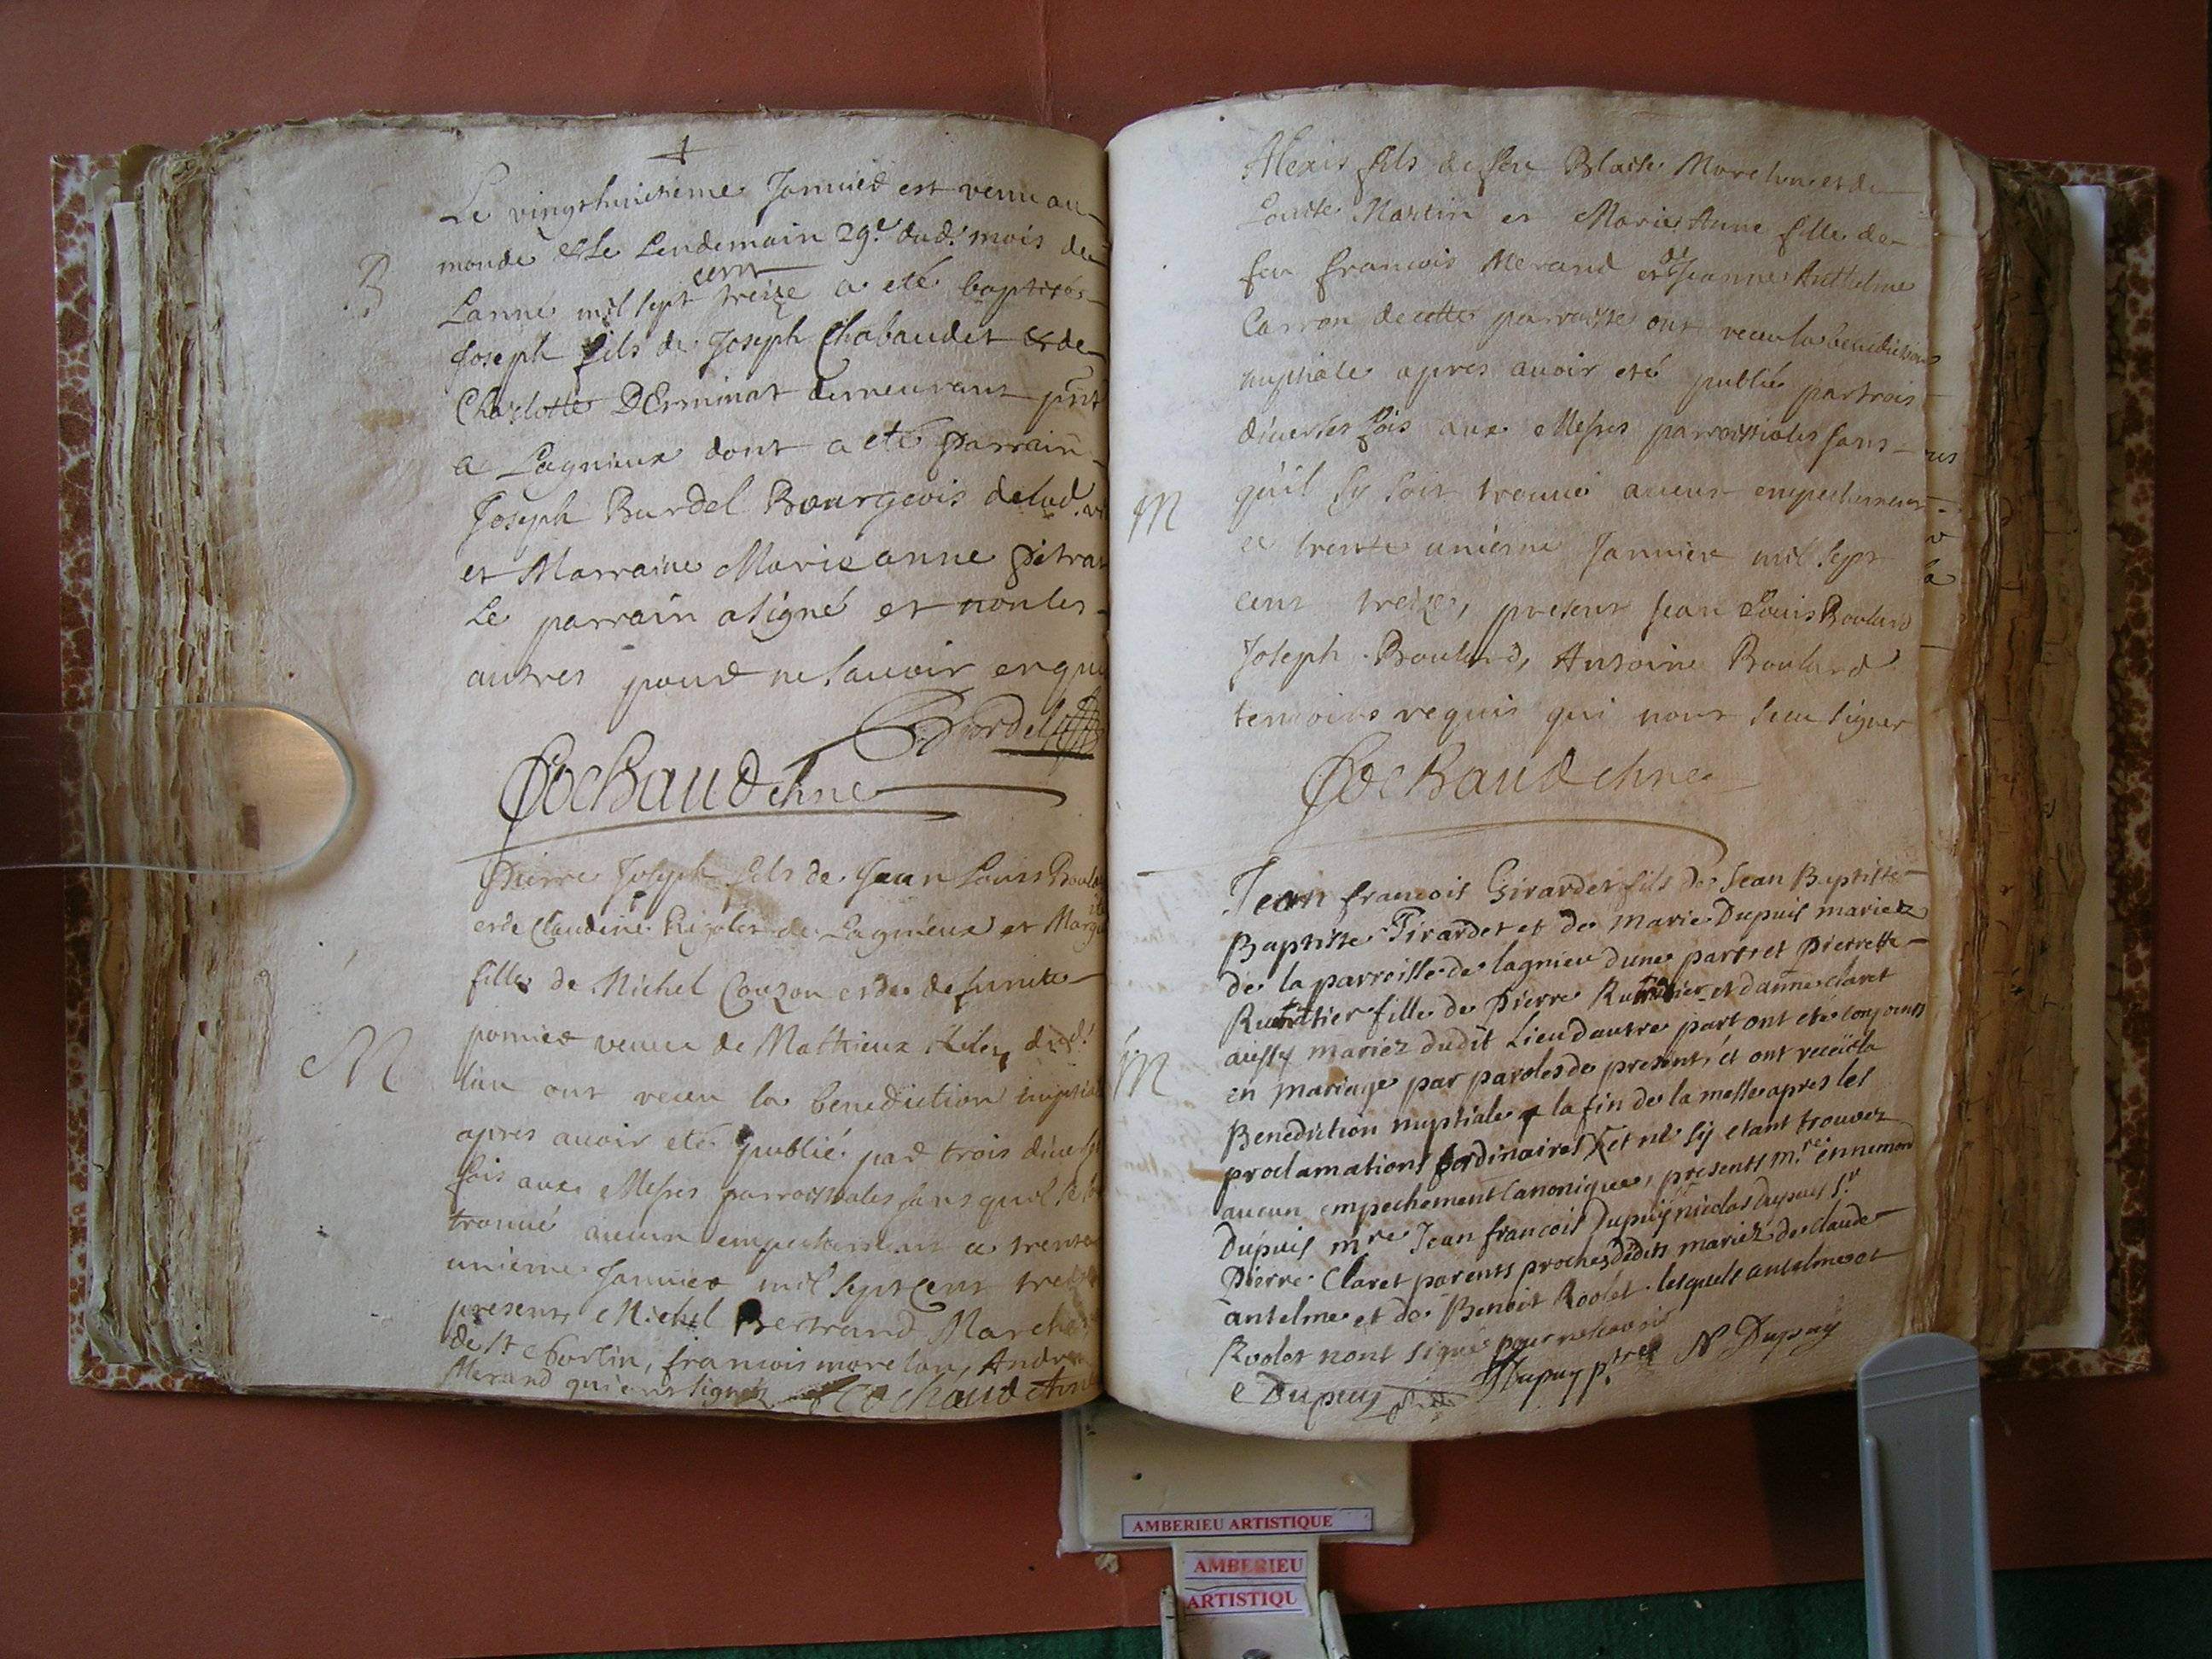 B
Le vingthuitieme Janvier est venu au
monde & Le Lendemain 29.e dud.t mois de
Lanné mil sept cent treize a eté baptisé
Joseph fils de Joseph Chabaudet & de
Charlotte DErminat demeurant pnt
a Lagnieux dont a eté parrain
Joseph Burdel Bourgeois delad.
et Marraine Marieanne
Le parrain a signé et non les
autres pour ne savoir enquis
Burdel
Cochaud chne
Pierre Joseph fils de Jean Louis
et de Claudine Rigolet de Lagnieux et
fille de Michel Couzon et de defunite
M
veuve de Mathieux dud.t
lieu ont receu la benediction
apres avoir eté publié par trois
fois aux Messes parroissiales sans quil
trouvé aucun empechement a trente
unieme Janvier mil sept cent
present Michel Bertrand
de St Sorlin, francois morelon,
Merand qui ont signéz Cochaud chne
Alexis fils de feu Blaise Morelon et de
Louise Martin et Marie Anne fille de
feu francois Merand et de Jeanne Anthelme
Carron de cette parroisse ont receu la benediction
nuptiale apres avoir eté publié par trois
diverses fois aux Messes parroissiales sans
M
quil sy soit trouvé aucun empechement
ce trente unieme Janvier mil sept
cent treize, present Jean Louis Boulard
Joseph Boulard, Antoine Boulard
temoins requis qui nont sceu signer
Cochaud chne
Jean francois Girardet fils de Jean Baptiste
Baptiste Girardet et de marie Dupuis mariez
de la parroisse de lagnieu dune part et pierrette
fille de Pierre et danne claret
M
aussy mariez dudit Lieu dautre part ont eté conjoints
en mariage par paroles de present, et ont receu la
Benediction nuptiale a la fin de la messe apres les
proclamations ordinaires et ne sy etant trouvez
aucun empechement canonique, presents m.re ennemond
Dupuis m.re Jean francois Dupuy nicolas dupuy s.r
Pierre Claret parents proches dedits mariez de claude
antelme et de Benoit Roolet lesquels antelme et
Roolet nont signé pour ne scavoir
e Dupuy Dupuy p.tre N Dupuy
AMBERIEU ARTISTIQUE
AMBERIEU
ARTISTIQU